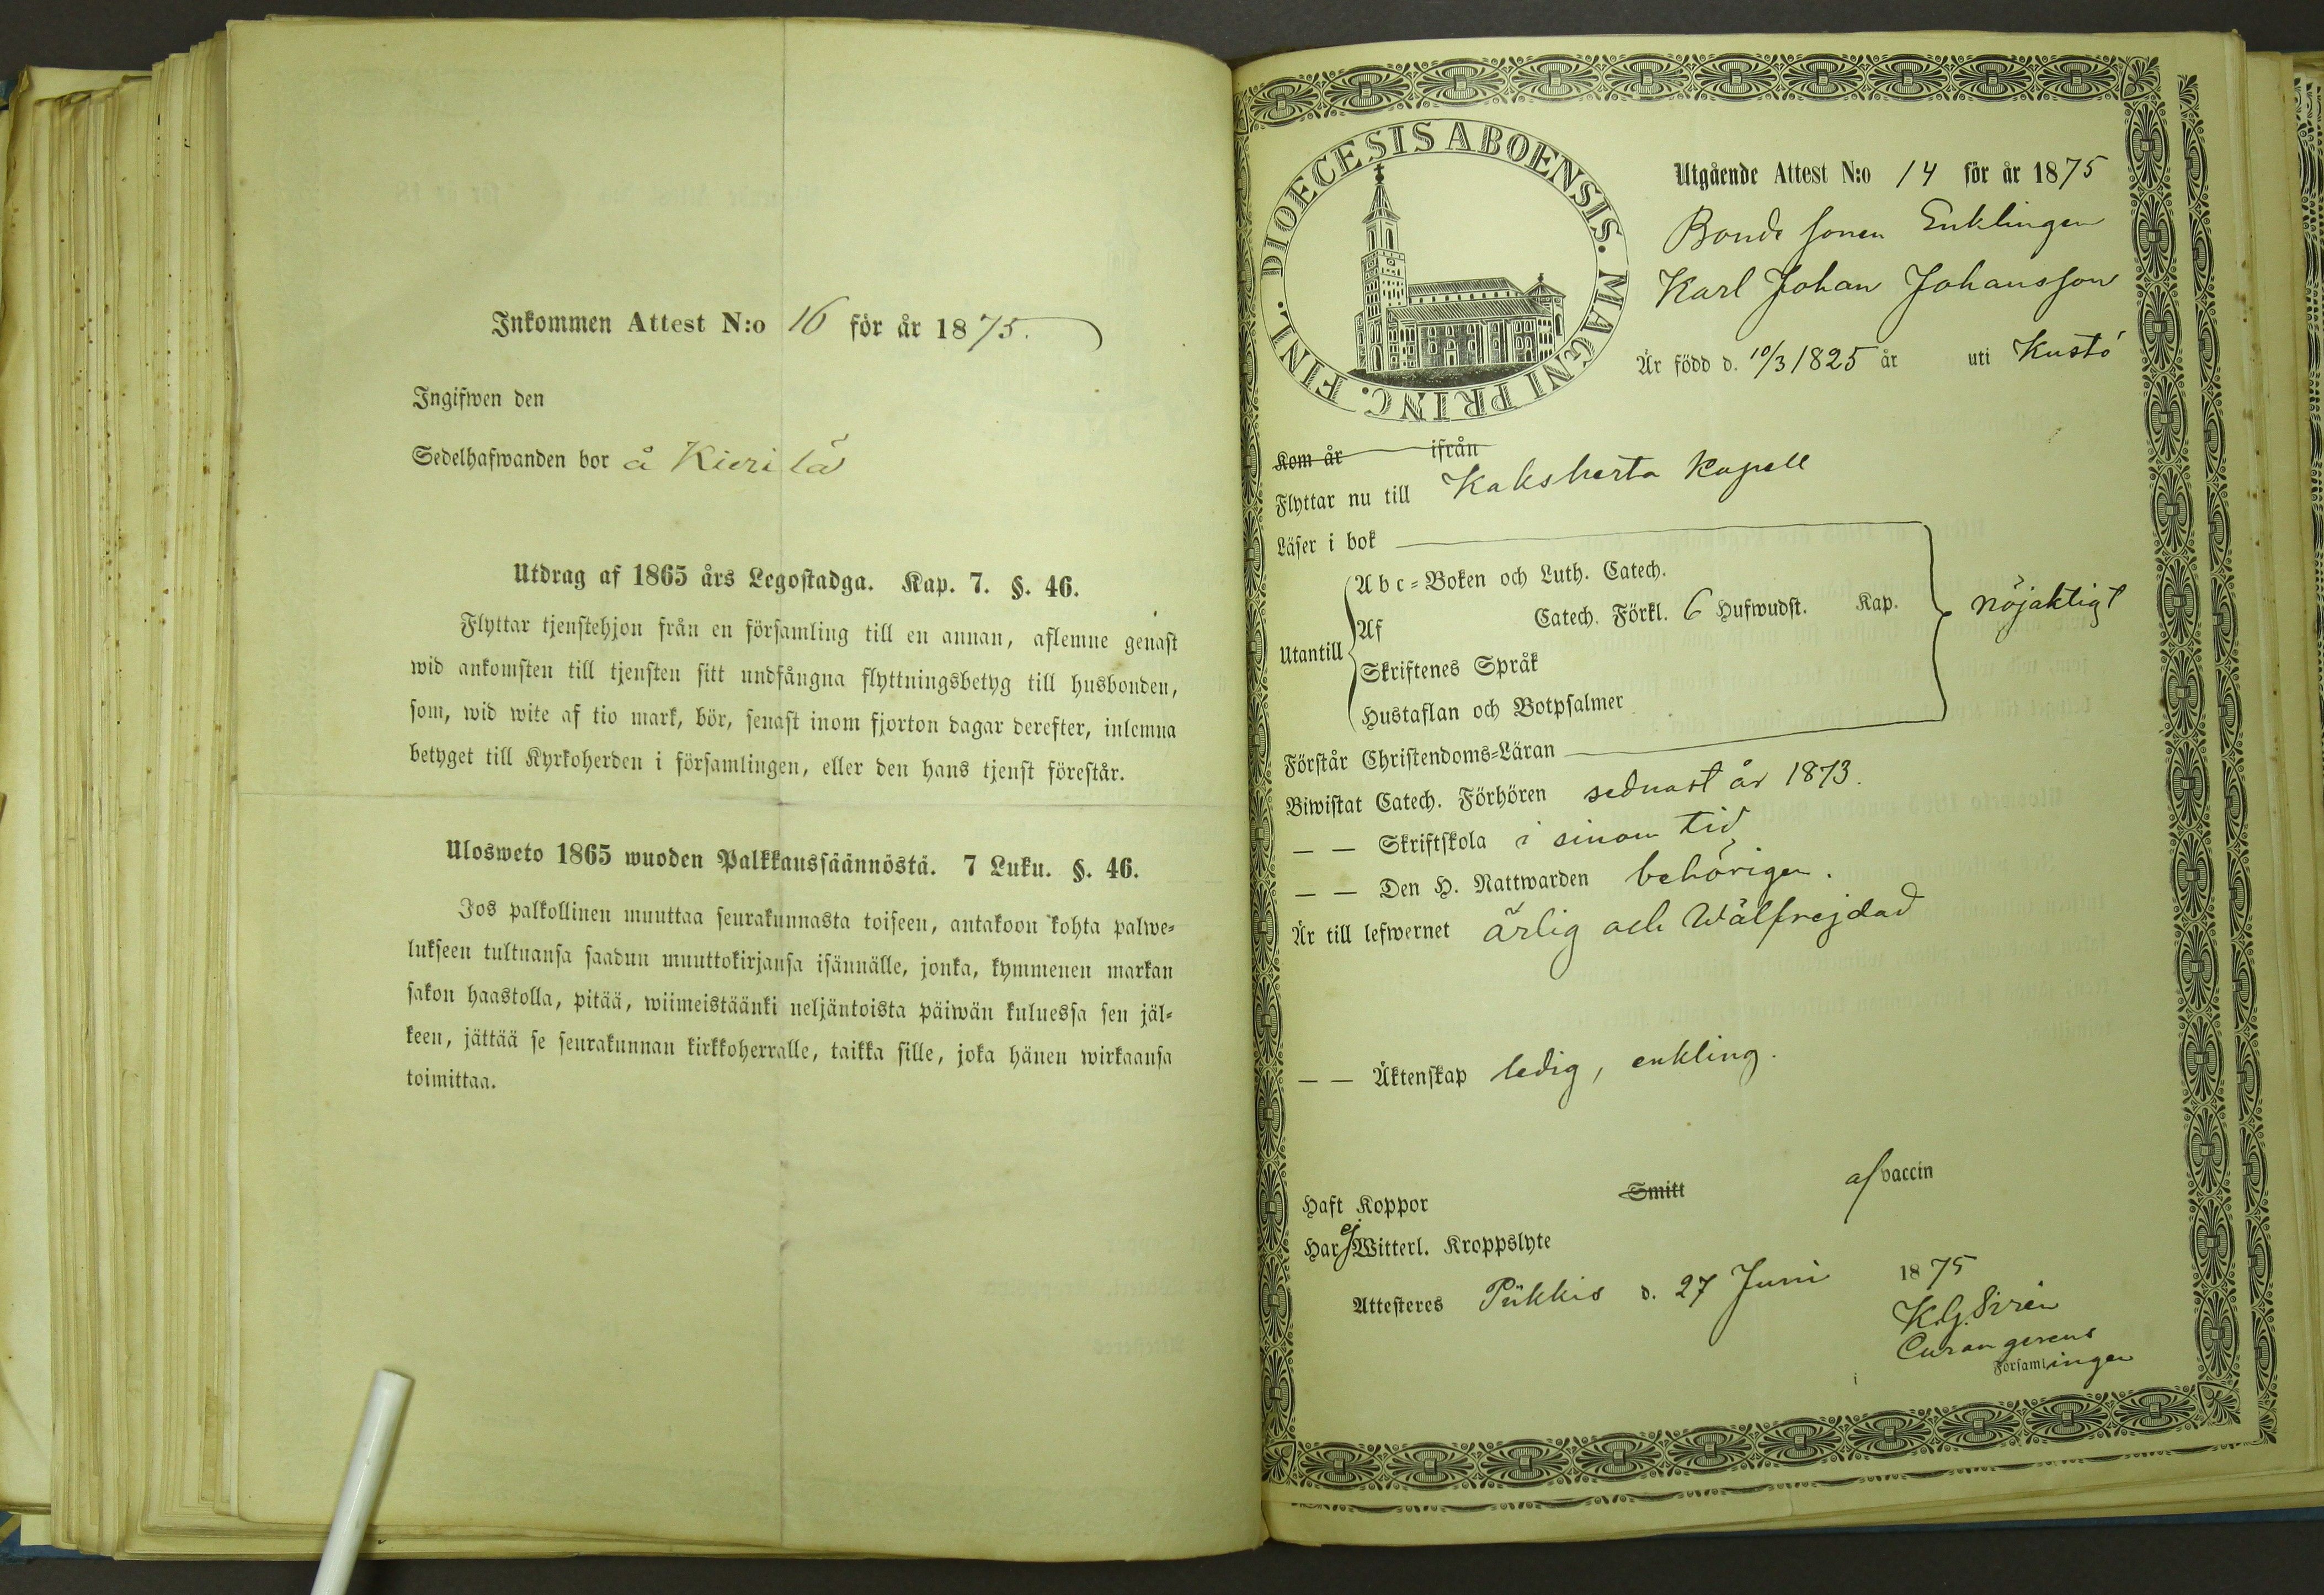 Inkommen Attest N:o 16 för år 1875.
Ingifwen den
Sedelhafwanden bor å Kierilä
Utdrag af 1865 års Legostadga. Kap. 7. §. 46.
Flyttar tjenstehjon från en församling till en annan, aflemne genast
wid ankomsten till tjensten sitt undfångna flyttningsbetyg till husbonden,
som, wid wite af tio mark, bör, senast inom fjorton dagar derefter, inlemna
betyget till Kyrkoherden i församlingen, eller den hans tjenst förestår.
Ulosweto 1865 wuoden Palkkaussäännöstä. 7 Luku. §. 46.
Jos palkollinen muuttaa seurakunnasta toiseen, antakoon kohta palwe=
lukseen tultuansa saadun muuttokirjansa isännälle, jonka, kymmenen markan
sakon haastolla, pitää, wiimeistäänki neljäntoista päiwän kuluessa sen jäl=
keen, jättää se seurakunnan kirkkoherralle, taikka sille, joka hänen wirkaansa
toimittaa.
DIOECESIS ABOENSIS. MAGNI PRINC. FINL.
Utgående Attest N:o 14 för år 1875
Bonde sonen Enklingen
Karl Johan Johansson
Är född d. 10/3 1825 år uti Kustö
Kom år ifrån
Flyttar nu till Kakskerta Kapell
Läser i bok
Utantill
Abc=Boken och Luth. Catech.
Af Catech. Förkl. 6 Hufwudst. Kap.
nöjaktigt
Skriftenes Språk
Hustaflan och Botpsalmer
Förstår Christendoms=Läran
Biwistat Catech. Förhören sednast år 1873.
— — Skriftskola i sinom tid
— — Den H. Nattwarden behörigen.
Är till lefwernet ärlig och Wälfrejdad
— — Äktenskap ledig, enkling.
Haft Koppor Smitt af vaccin
Har ej Witterl. Kroppslyte
Attesteres Piikkis d. 27 Juni 1875
K.G. Sirén
Curam gerens
i Församlingen